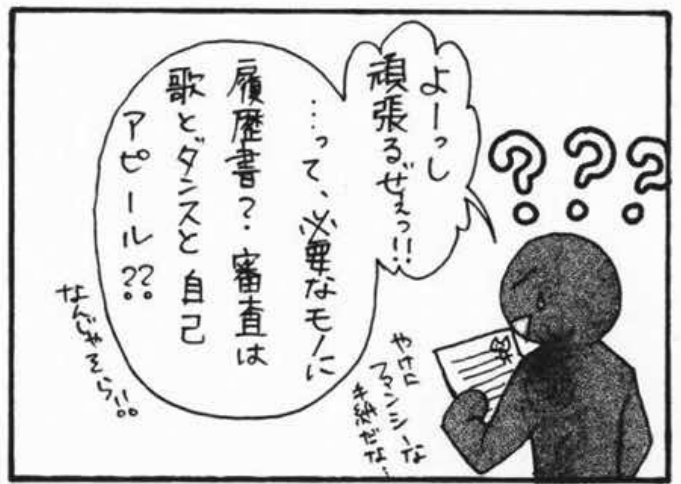 よーっし
頑張るぜぇっ!!
…って、必要なモノに
履歴書?審査は
歌とダンスと自己
アピール??
なんじゃそら!!
やけに
ファンシーな
手紙だな…
???